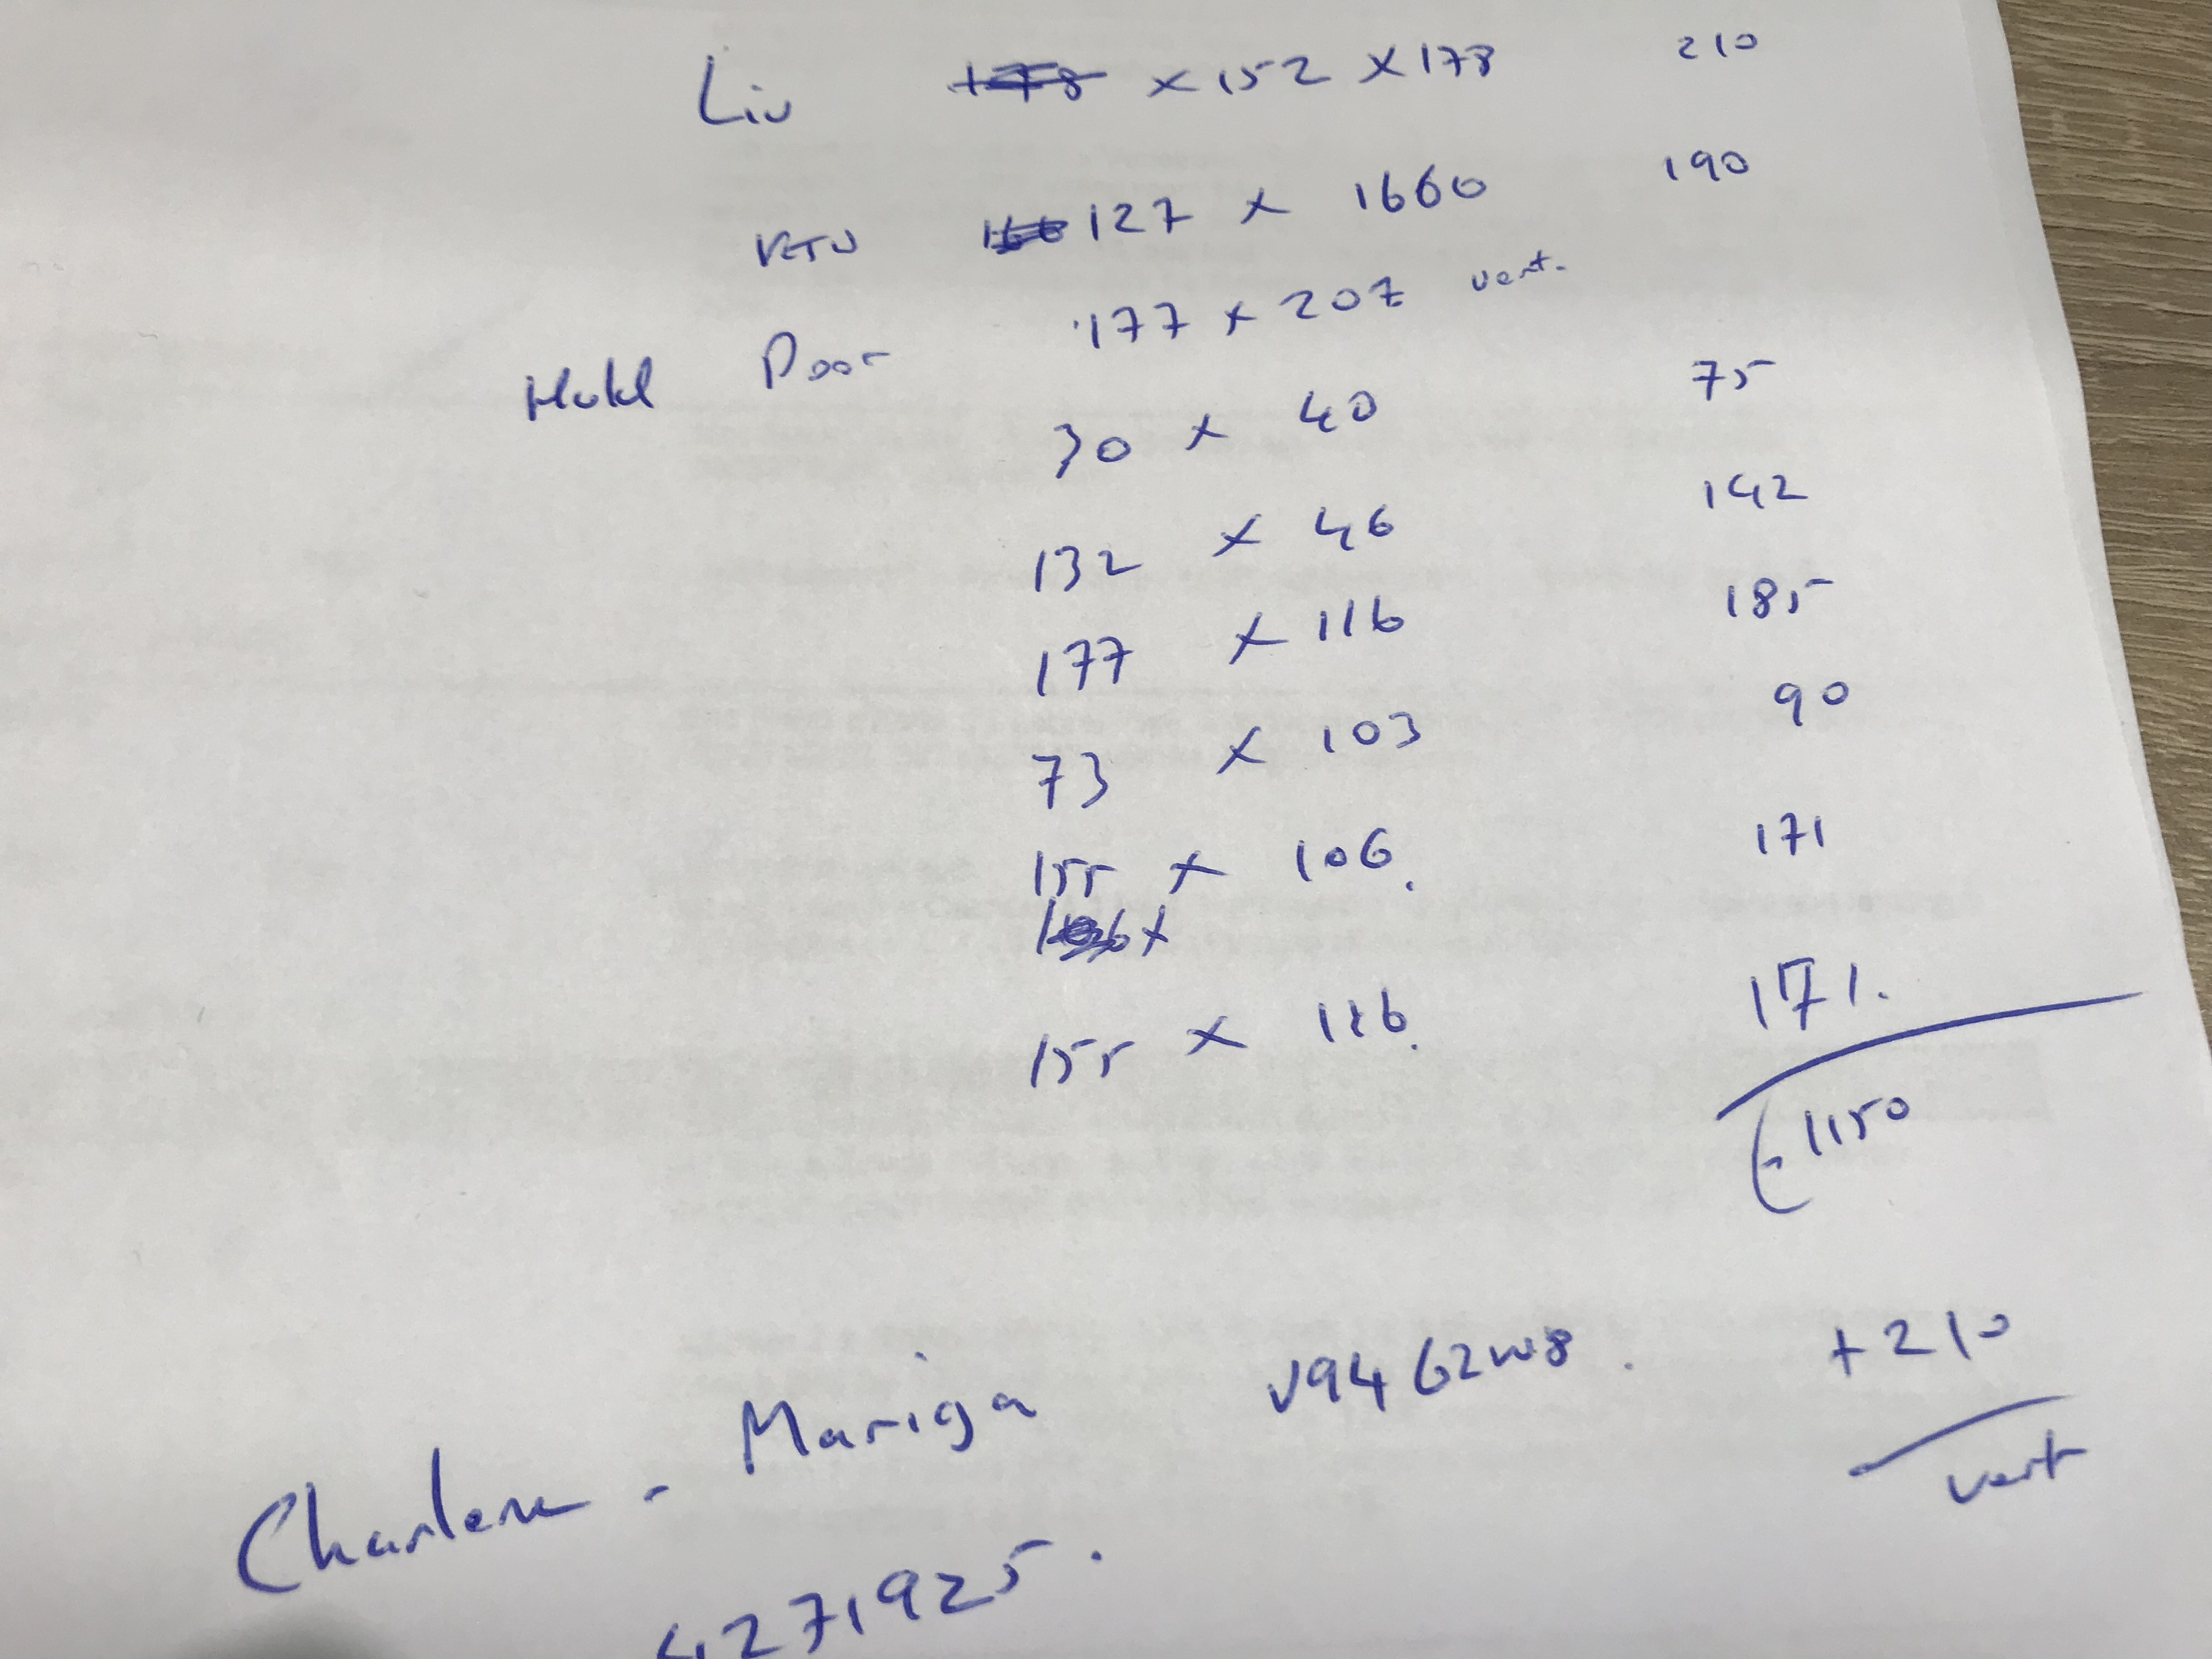 Liv x 152 x 178 210
KTU 127 x 1660 190
177 x 207 vert.
Door
30 x 40 75
132 x 46 142
177 x 116 185
73 x 103 90
155 x 106. 171
155 x 116. 171.
€1150
+210
vert
Charlene - Mariga V94 62W8.
4271925.